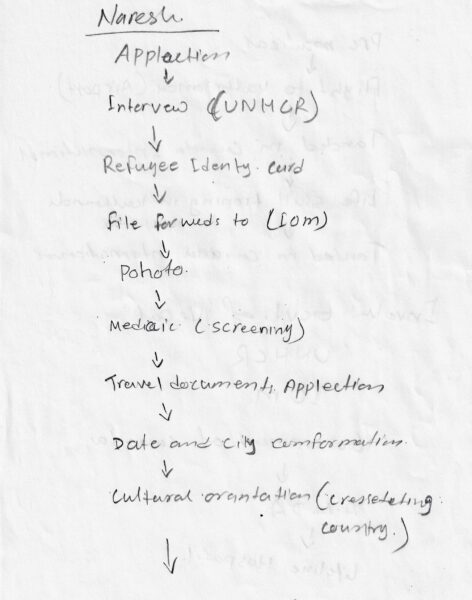 Naresh.
Applection
↓
Intervew (UNHCR)
↓
Refugee Identy. curd
↓
file forweds to (Iom)
↓
Pohoto.
↓
Medicic (screening)
↓
Travel document, Applection
↓
Date and city comformation
↓
Cultural orantation (cresseteting
country.)
↓